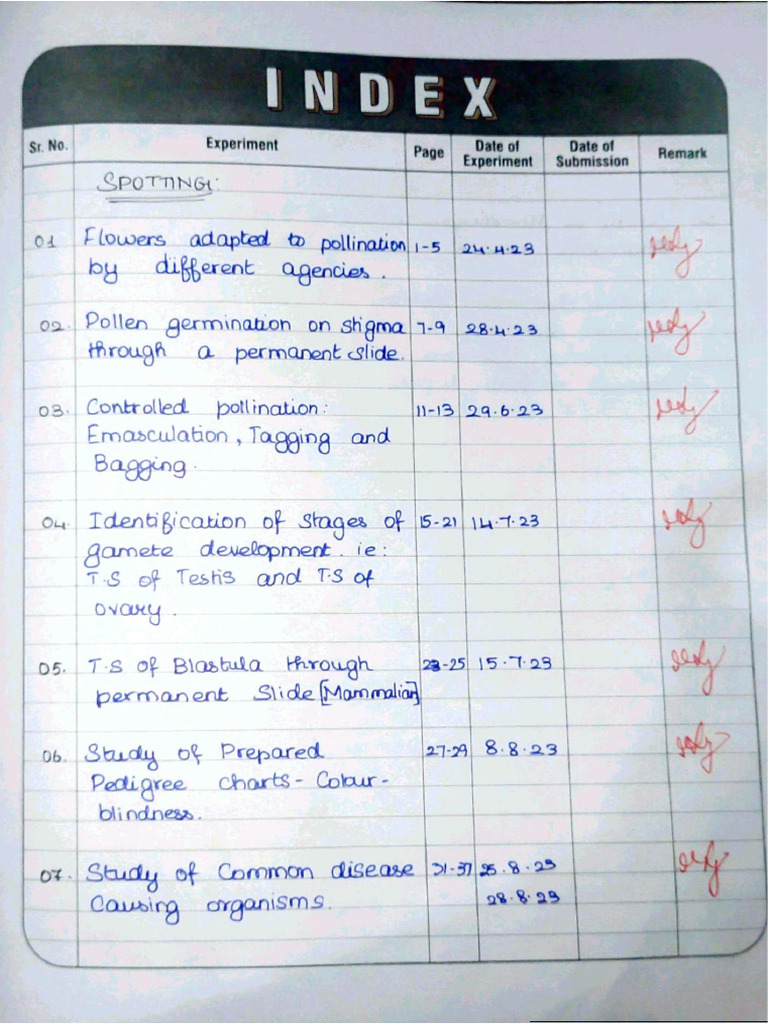 INDEX
Sr. No. Experiment Page Date of Experiment Date of Submission Remark
SPOTTING:
01 Flowers adapted to pollination 1-5 24.4.23
by different agencies.
02. Pollen germination on stigma 7-9 28.4.23
through a permanent slide.
03. Controlled pollination: 11-13 29.6.23
Emasculation, Tagging and
Bagging.
04. Identification of stages of 15-21 14.7.23
gamete development. ie:
T.S of Testis and T.S of
ovary.
05. T.S of Blastula through 23-25 15.7.23
permanent Slide [Mammalian]
06. Study of Prepared 27-29 8.8.23
Pedigree charts - Colour-
blindness.
07. Study of Common disease 31-37 25.8.23
Causing organisms. 28.8.23